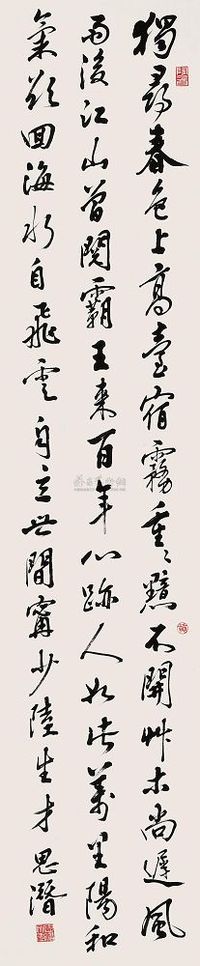 獨尋春色上高臺宿霧重〻黯不開艸木尚遲風
雨後江山曾閱霸王來百年心跡人如此萬里陽和
氣欲回海水自飛雲自立世間甯少陸生才 思潛